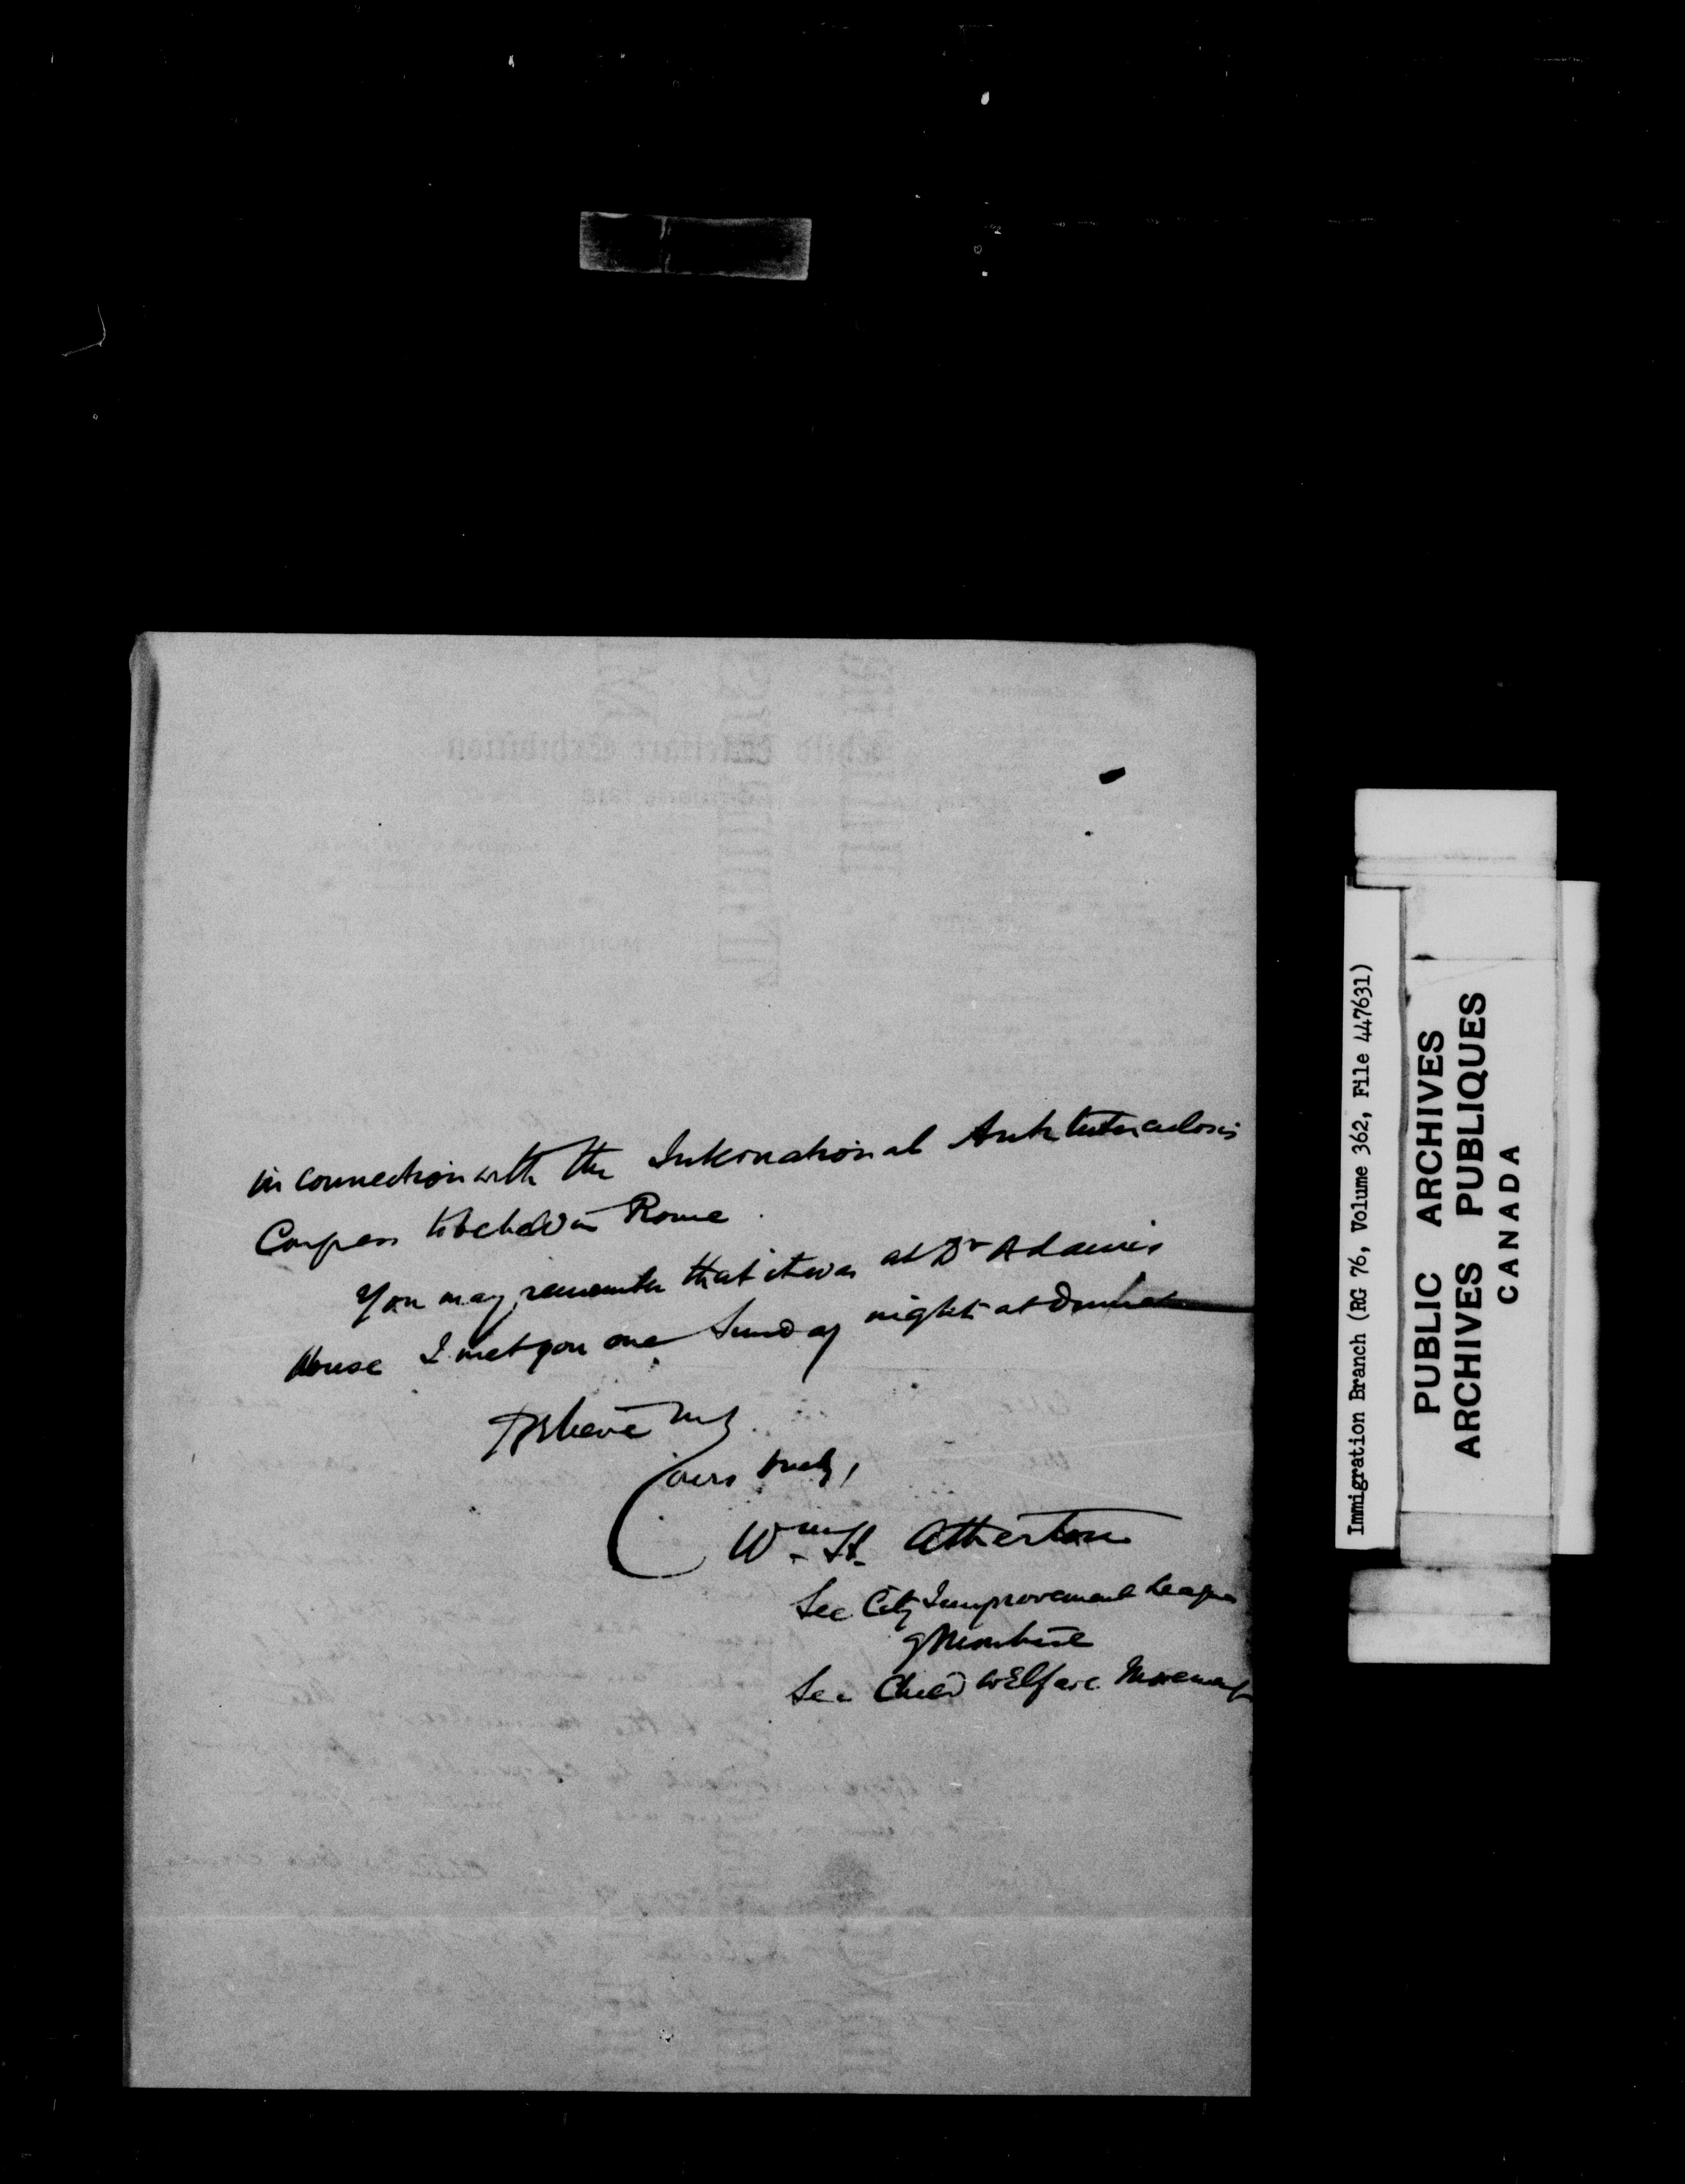 in connection with the International Antituberculosis
Congress to be held in Rome.
You may remember that it was at Dr Adami's
House I met you one Sunday night at dinner
Believe me
Yours truly,
Wm. H. Atherton
Sec City Improvement League
of Montreal
Sec Child Welfare Movement
Immigration Branch (RG 76, Volume 362, File 447631)
PUBLIC ARCHIVES
ARCHIVES PUBLIQUES
CANADA